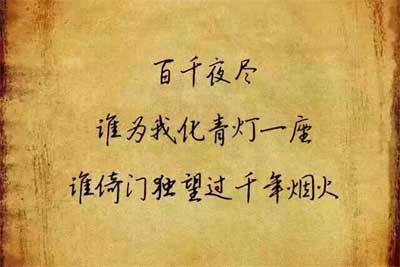 百千夜尽
谁为我化青灯一座
谁倚门独望过千年烟火